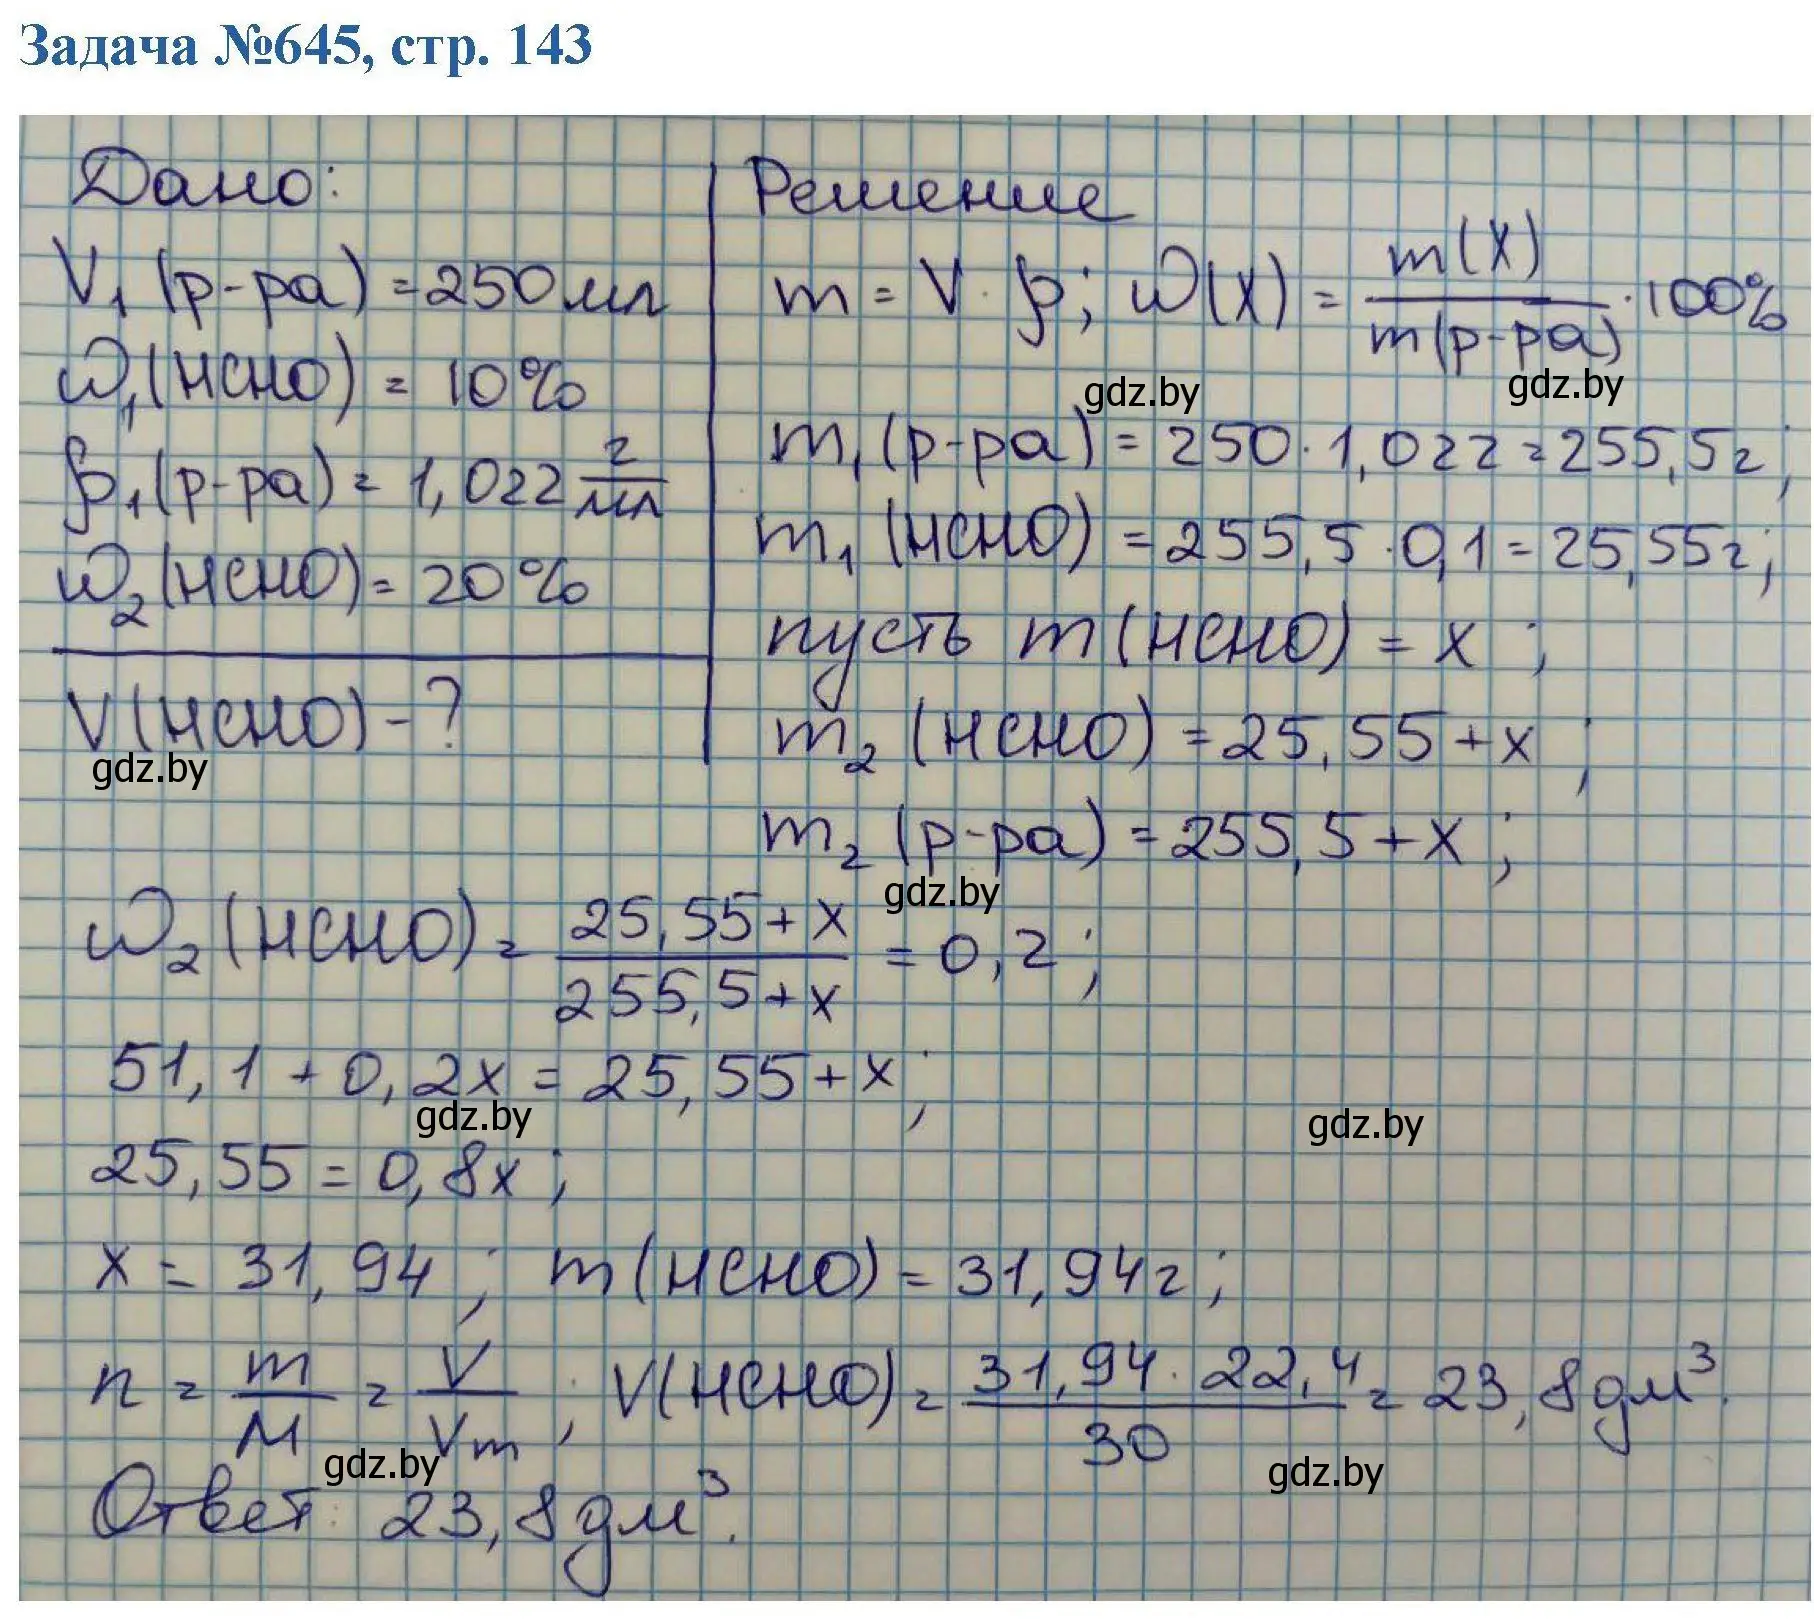 Задача №645, стр. 143
Дано:
V₁(р-ра) = 250 мл
ω₁(HCHO) = 10%
ρ₁(р-ра) = 1,022 г/мл
ω₂(HCHO) = 20%
V(HCHO) - ?
gdz.by
Решение
m = V · ρ; ω(X) = m(X)/m(р-ра) · 100%
gdz.by gdz.by
m₁(р-ра) = 250 · 1,022 = 255,5г;
m₁(HCHO) = 255,5 · 0,1 = 25,55г;
пусть m(HCHO) = x ;
m₂(HCHO) = 25,55 + x ;
m₂(р-ра) = 255,5 + x ;
gdz.by
ω₂(HCHO) = (25,55 + x)/(255,5 + x) = 0,2 ;
51,1 + 0,2x = 25,55 + x ;
gdz.by gdz.by
25,55 = 0,8x ;
x = 31,94 ; m(HCHO) = 31,94г ;
n = m/M = V/Vm ; V(HCHO) = (31,94 · 22,4)/30 = 23,8 дм³.
gdz.by gdz.by
Ответ: 23,8 дм³.